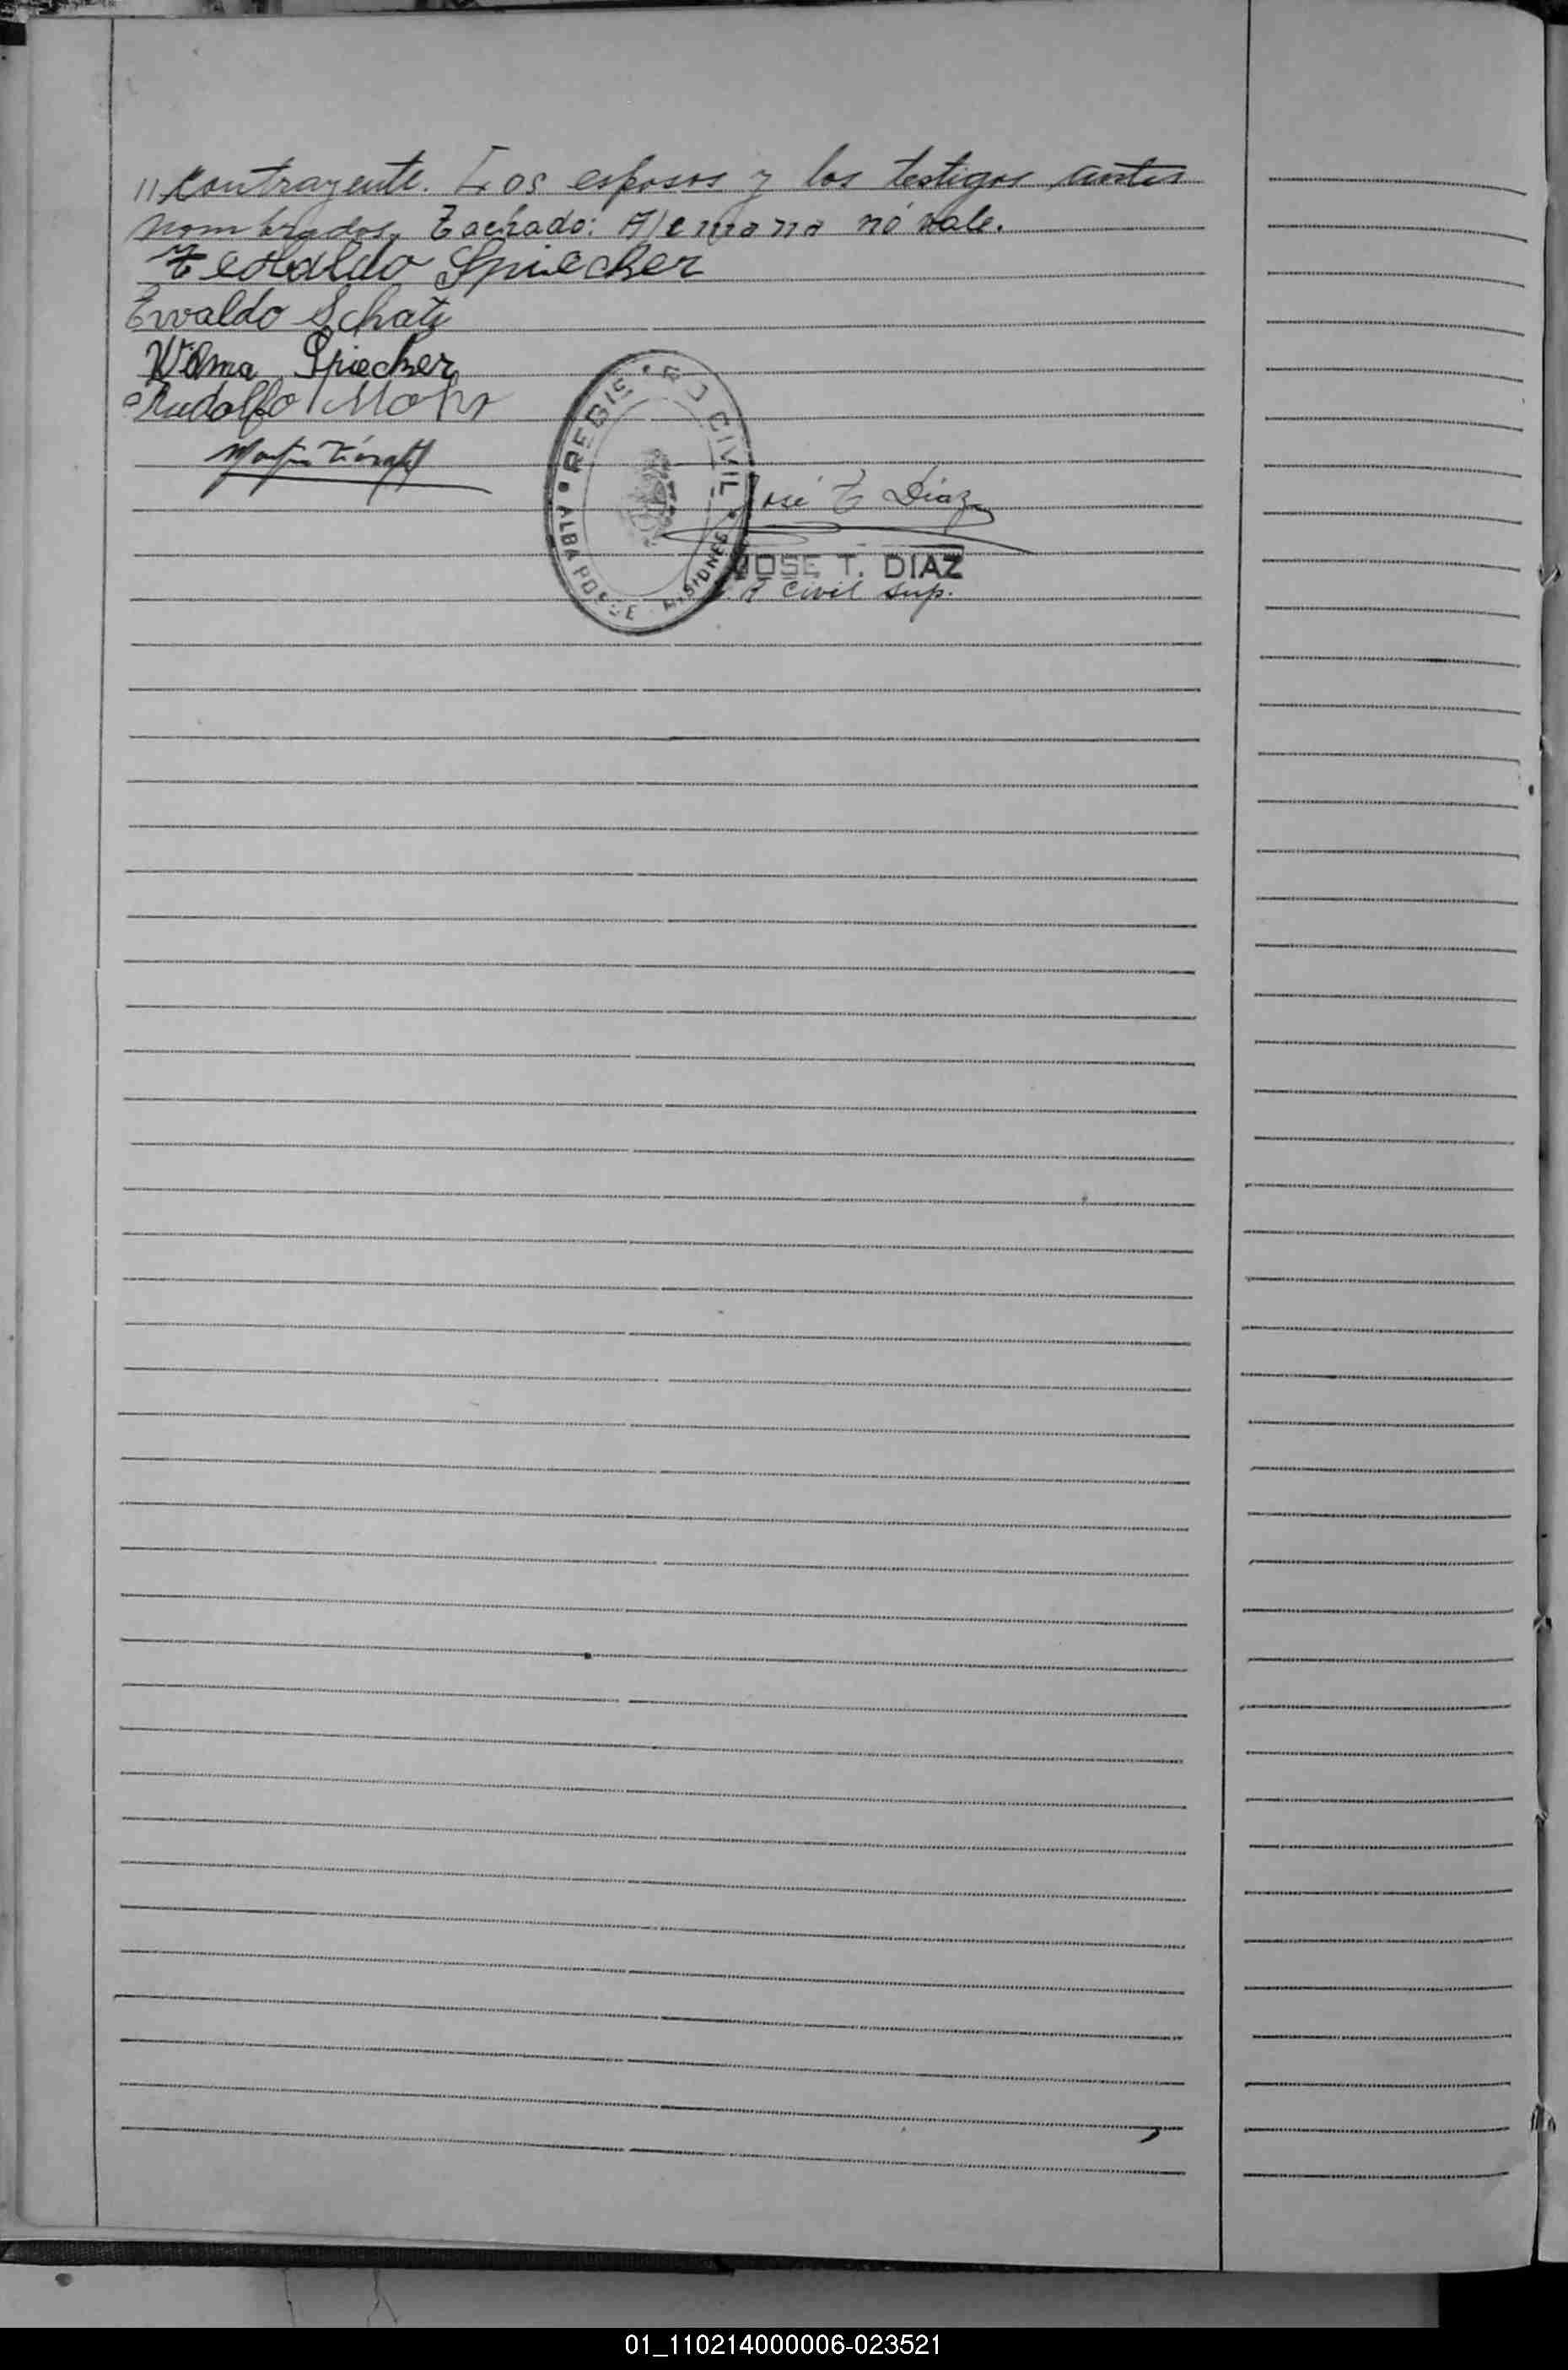 // Contrayente. Los esposos y los testigos antes
nombrados. Tachado: Alemana nó vale.
Teobaldo Spiecker
Ewaldo Schatz
Wilma Spiecker
Rudolfo Mohr
José T Díaz
REGIS RO CIVIL
ALBA POSSE MISIONES
JOSE T. DIAZ
Civil Sup.
01_110214000006-023521